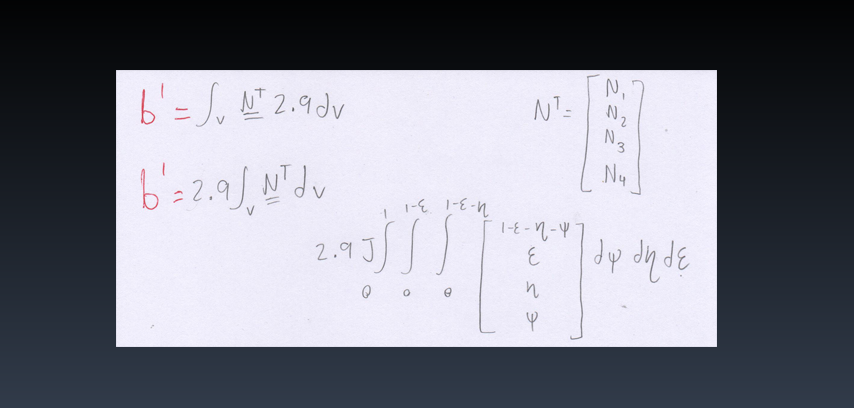 b' = ∫v N^T 2.9 dv
N^T = [N1 N2 N3 N4]
b' = 2.9 ∫v N^T dv
2.9 J ∫0^1 ∫0^1-ε ∫0^1-ε-η [1-ε-η-ψ ε η ψ] dψ dη dε